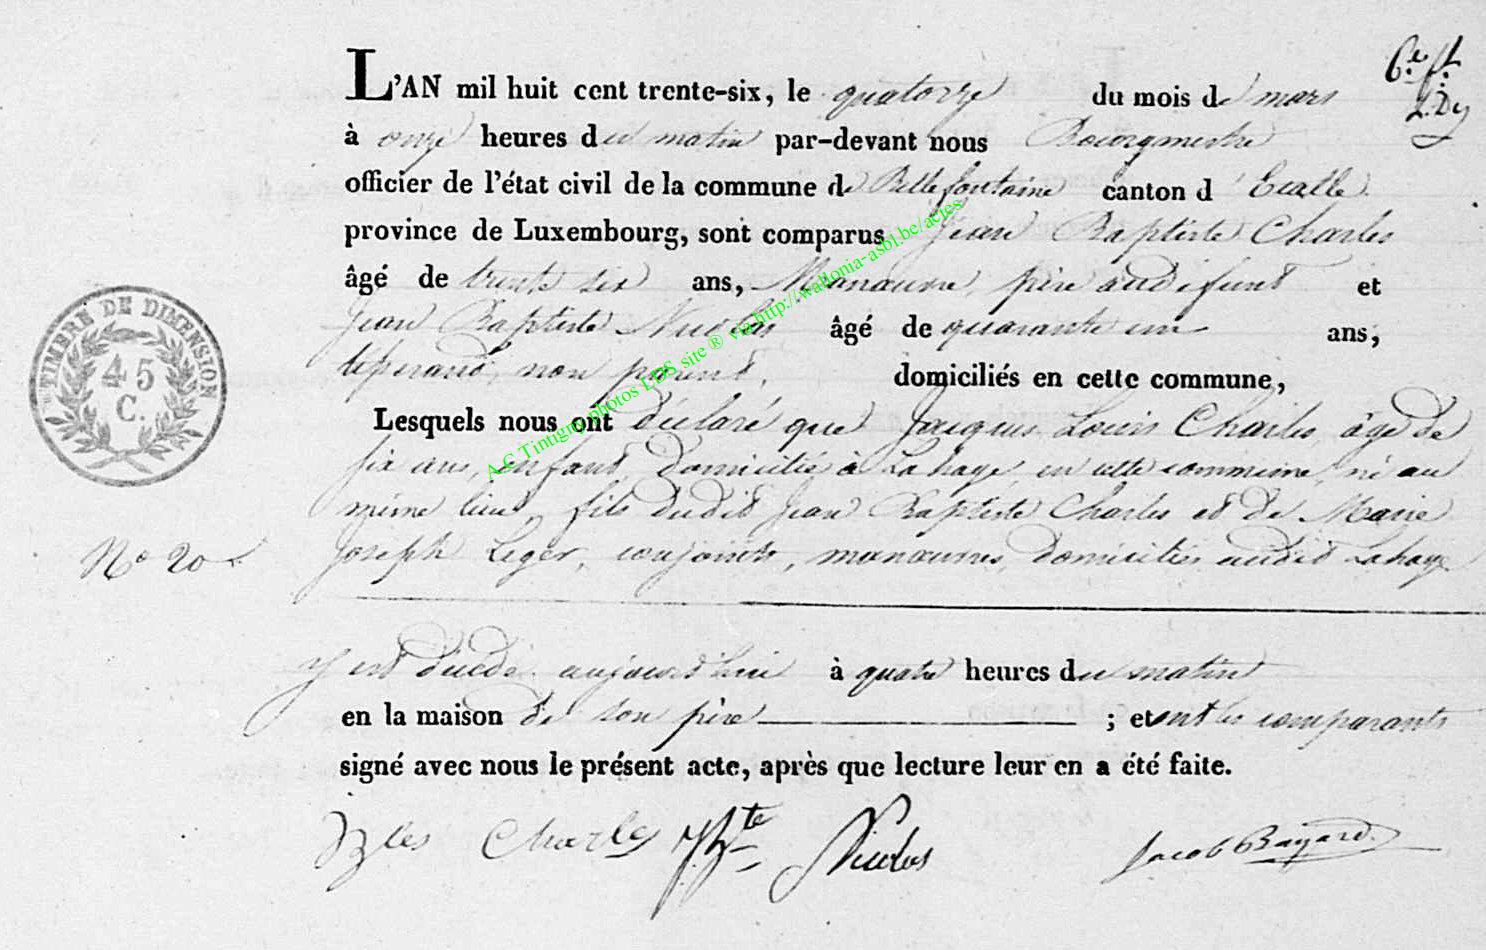 L'AN mil huit cent trente-six, le quatorze du mois de mars
à onze heures du matin par-devant nous Bourgmestre
officier de l'état civil de la commune de Bellefontaine canton d'Etalle
province de Luxembourg, sont comparus Jean Baptiste Charles
âgé de trente six ans, Manœuvre, père audéfunt et
Jean Baptiste Nicolas âgé de quarante un ans,
tisserand, non parent, domiciliés en cette commune,
Lesquels nous ont déclaré que Jacques Louis Charles, âgé de
six ans, enfant, domicilié à Lahage, en cette commune, né au
même lieu, fils dudit Jean Baptiste Charles et de Marie
Joseph Leger, conjoints, manœuvres, domiciliés audit Lahage
y est décédé aujourd'hui à quatre heures du matin
en la maison de son père ; et ont les comparants
signé avec nous le présent acte, après que lecture leur en a été faite.
Charles J Bte Nicolas Jacob Bayard.
No 20
TIMBRE DE DIMENSION
45
C.
A.C Tintigny photos LDS site ® via http://wallonia-asbl.be/actes